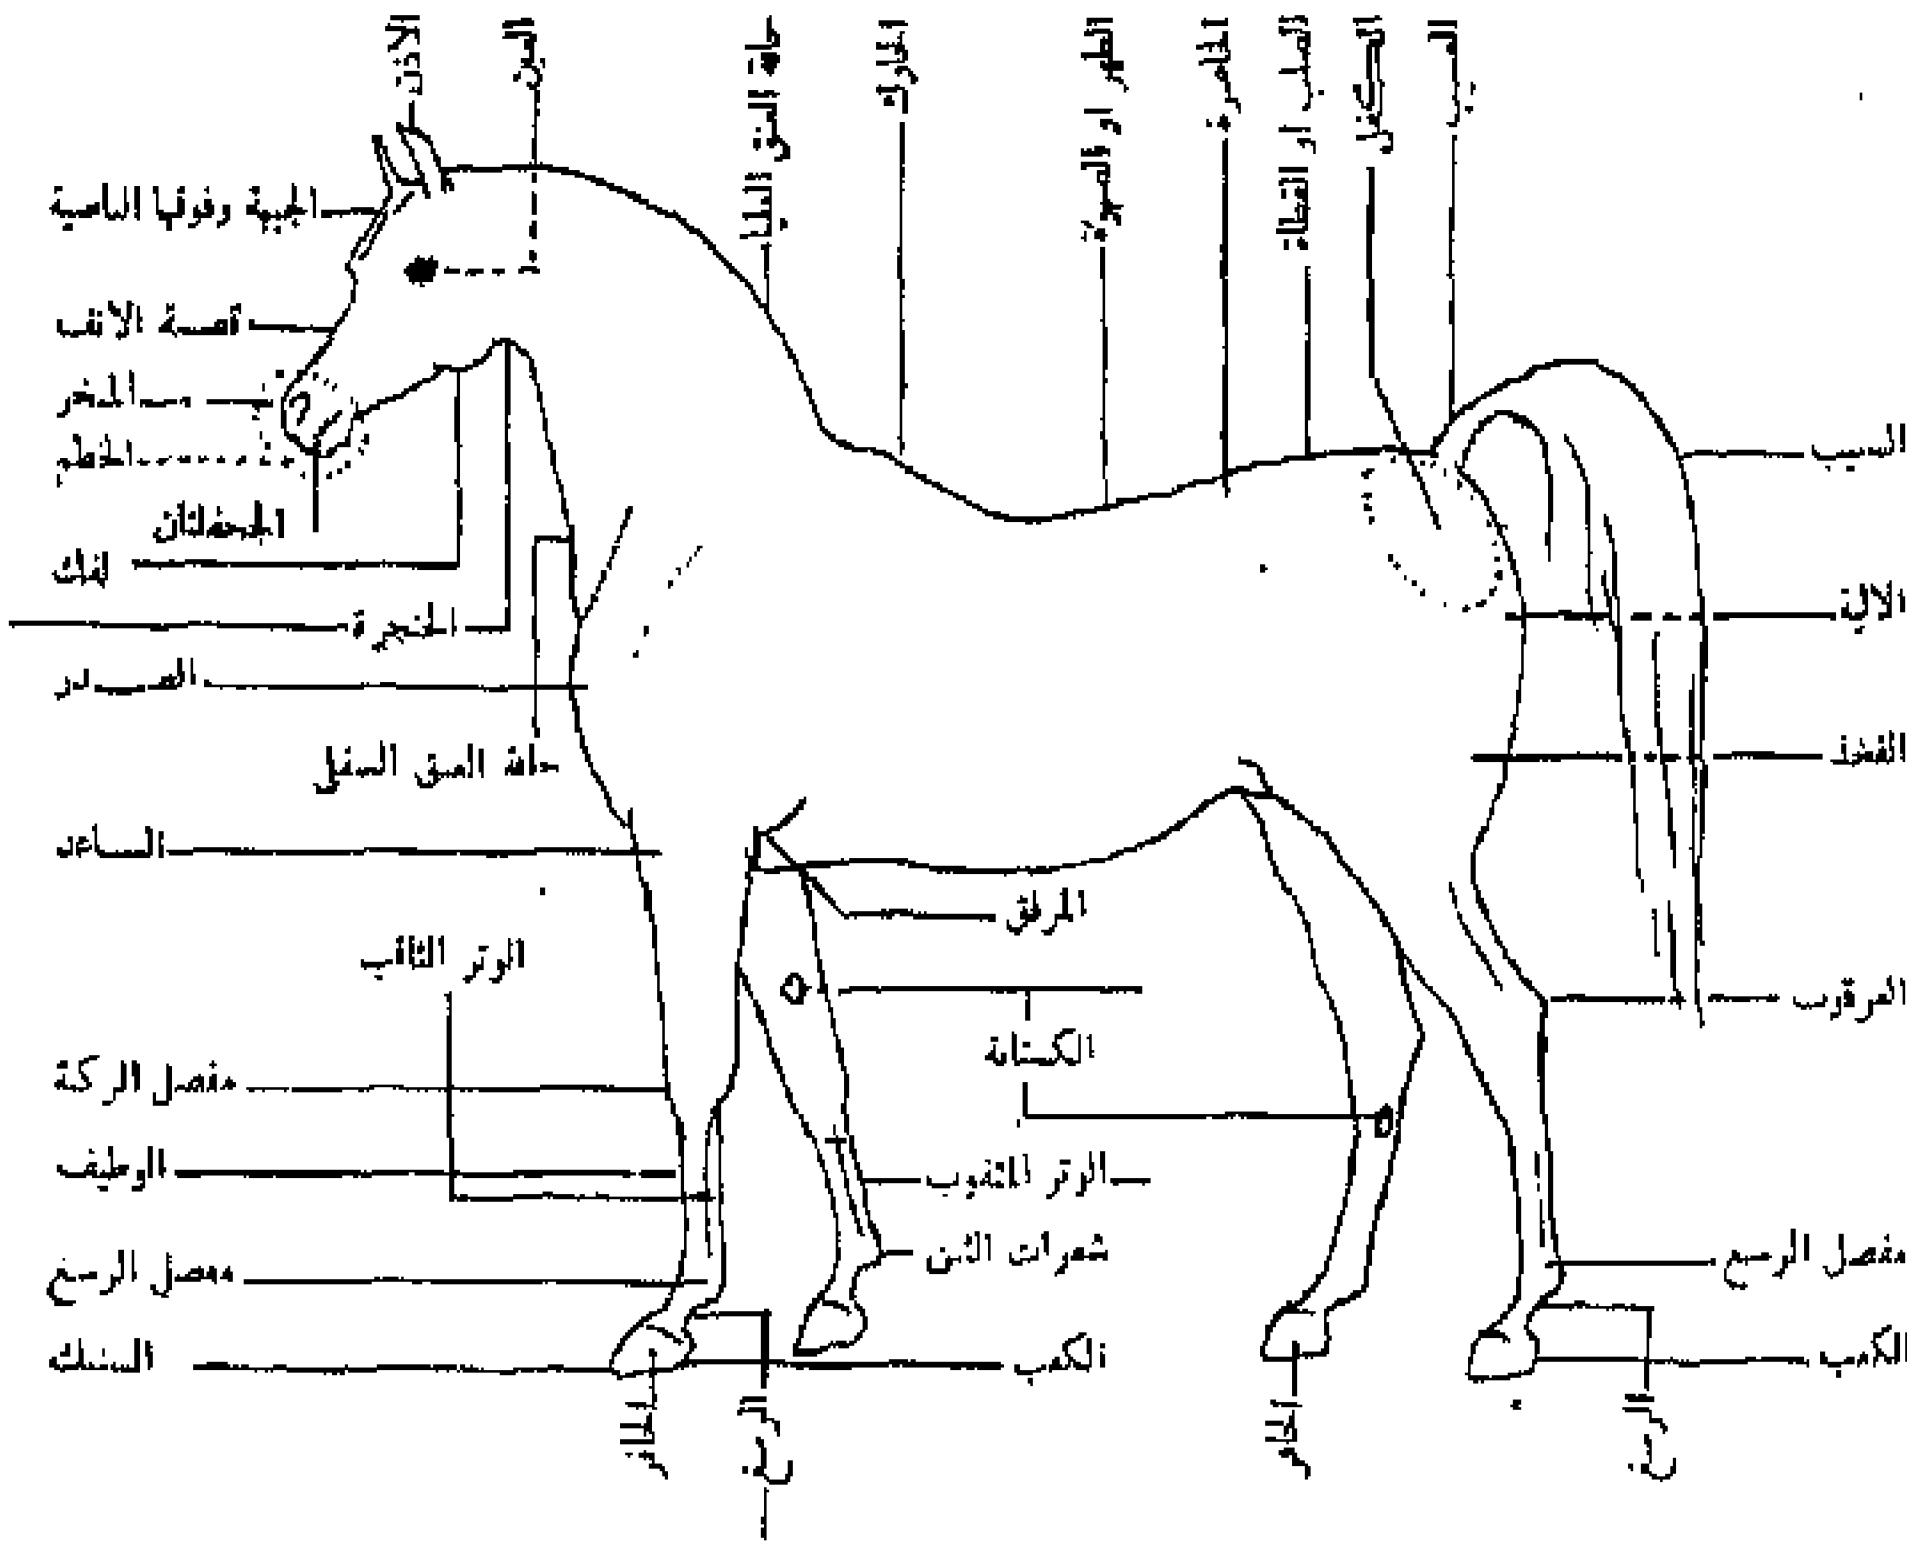 الاذن
العين
حافة العنق العليا
الحارك
الظهر او الصهوة
الخاصرة
الصلب او القطاة
الكفل
الجبهة وفوقها الناصية
قصبة الانف
المنخر
الخطم
الجحفلتان
لفك
الحنجرة
الصدر
حافة العنق السفلى
الساعد
الوتر الثاقب
مفصل الركبة
الوظيف
مفصل الرسغ
السنبك
المرفق
الكستانة
الوتر المثقوب
شعرات الثنن
الكعب
الحافر
الرسغ
العسيب
الالية
الفخذ
العرقوب
مفصل الرسغ
الكعب
الحافر
الرسغ